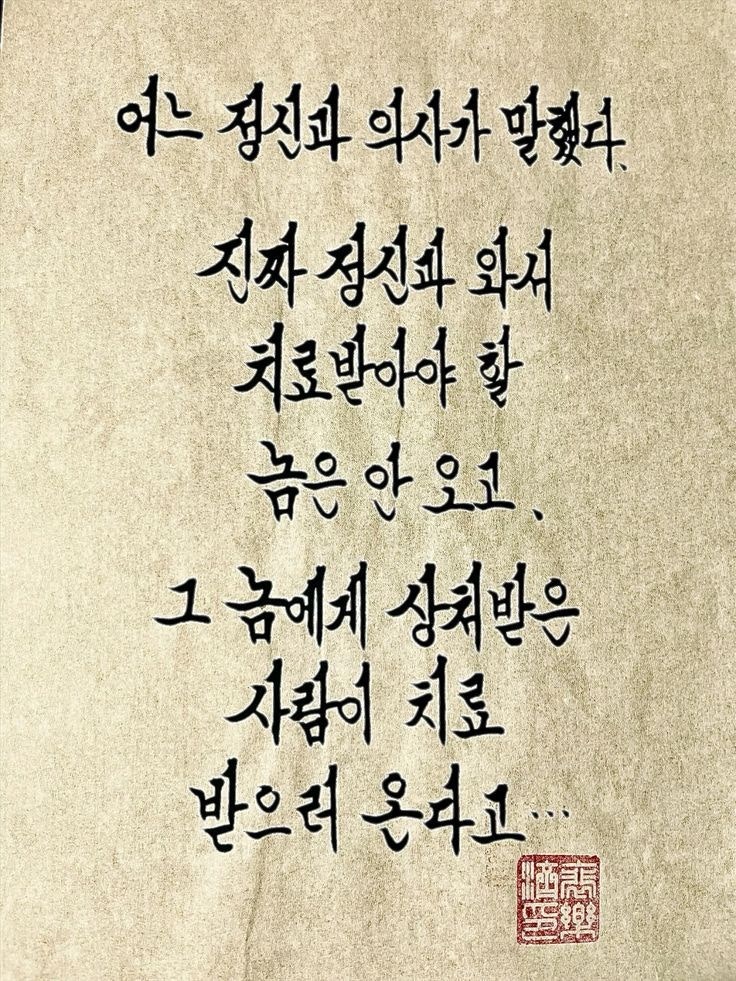 어느 정신과 의사가 말했다.
진짜 정신과 와서
치료받아야 할
놈은 안 오고,
그 놈에게 상처받은
사람이 치료
받으러 온다고...